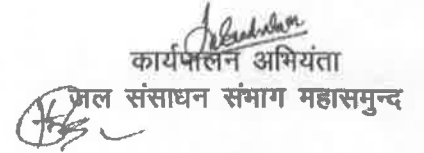 कार्यपालन अभियंता
जल संसाधन संभाग महासमुन्द